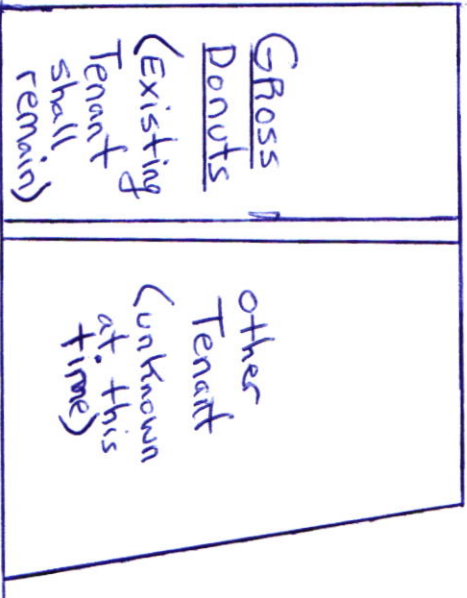 GRoss
Donuts
(Existing
Tenant
shall
remain)
other
Tenant
(unknown
at this
time)